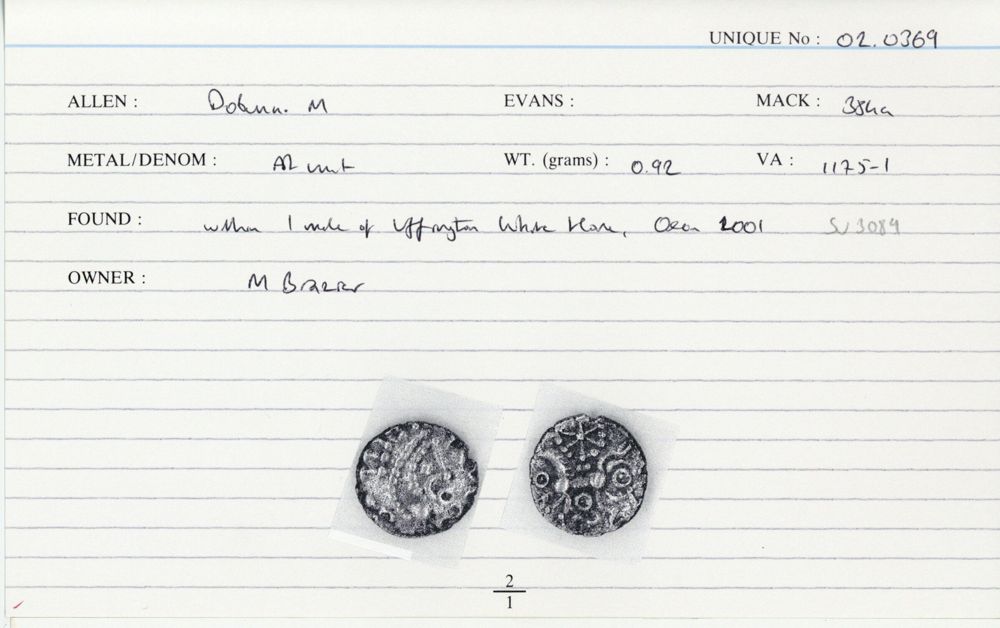 UNIQUE No : 02.0369
ALLEN : Dobunn. M EVANS : MACK : 384a
METAL/DENOM : AR unit WT. (grams) : 0.92 VA : 1175-1
FOUND : within 1 mile of Uffington White Horse, Oxon 2001 SU 3089
OWNER : M
2
1